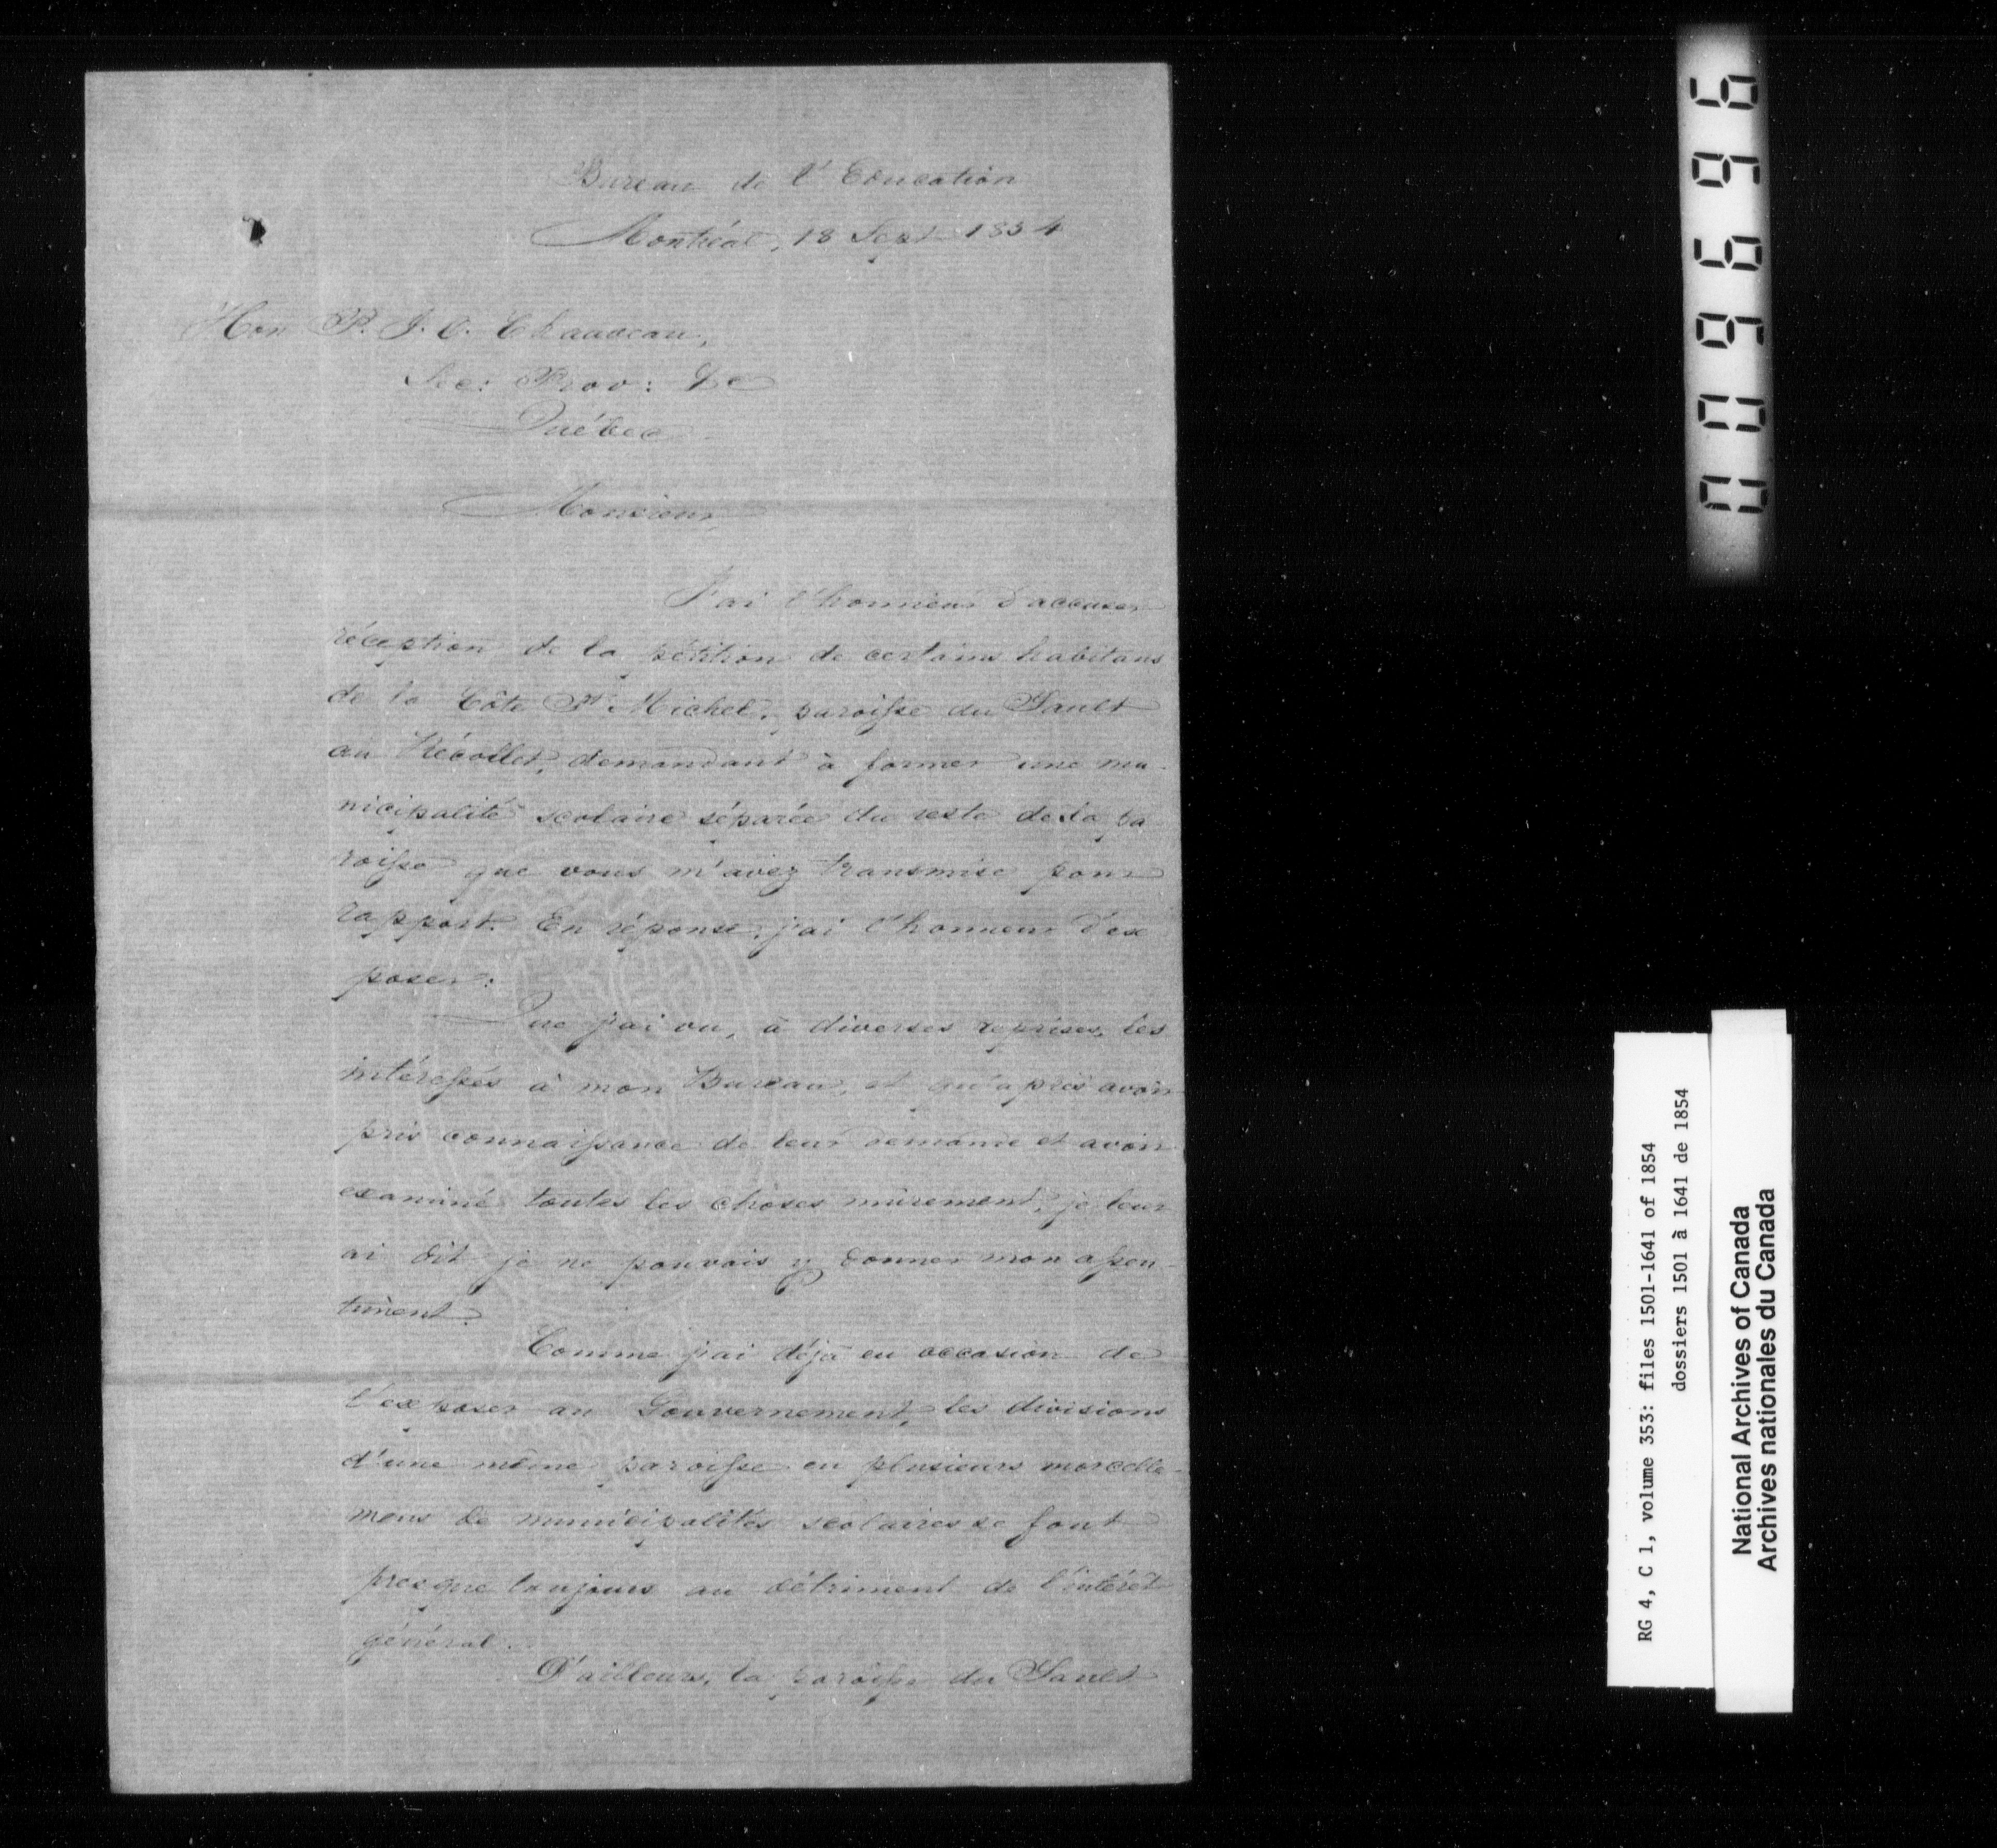 Bureau de l'Education
Montréal, 18 Sept 1854
Hon P. J. O. Chauveau,
Sec: Prov: &c
Québec
Monsieur,
J'ai l'honneur d'accuser
réception de la pétition de certains habitans
de la Côte St Michel, paroisse du Sault
au Récollet, demandant à former une mu-
nicipalité scolaire séparée du reste de la pa
roisse que vous m'avez transmise pour
rapport. En réponse, j'ai l'honneur d'ex
poser:
Que j'ai vu, à diverses reprises, les
intéressés à mon Bureau, et qu'après avoir
pris connaissance de leur demande et avoir
examiné toutes les choses mûrement, je leur
ai dit je ne pouvais y donner mon assen-
timent.
Comme j'ai déjà eu occasion de
l'exposer au Gouvernement, les divisions
d'une même paroisse en plusieurs morcelle-
mens de municipalités scolaires se font
presque toujours au détriment de l'intérêt
général.
D'ailleurs, la paroisse du Sault
009696
RG 4, C 1, volume 353: files 1501-1641 of 1854
dossiers 1501 à 1641 de 1854
National Archives of Canada
Archives nationales du Canada